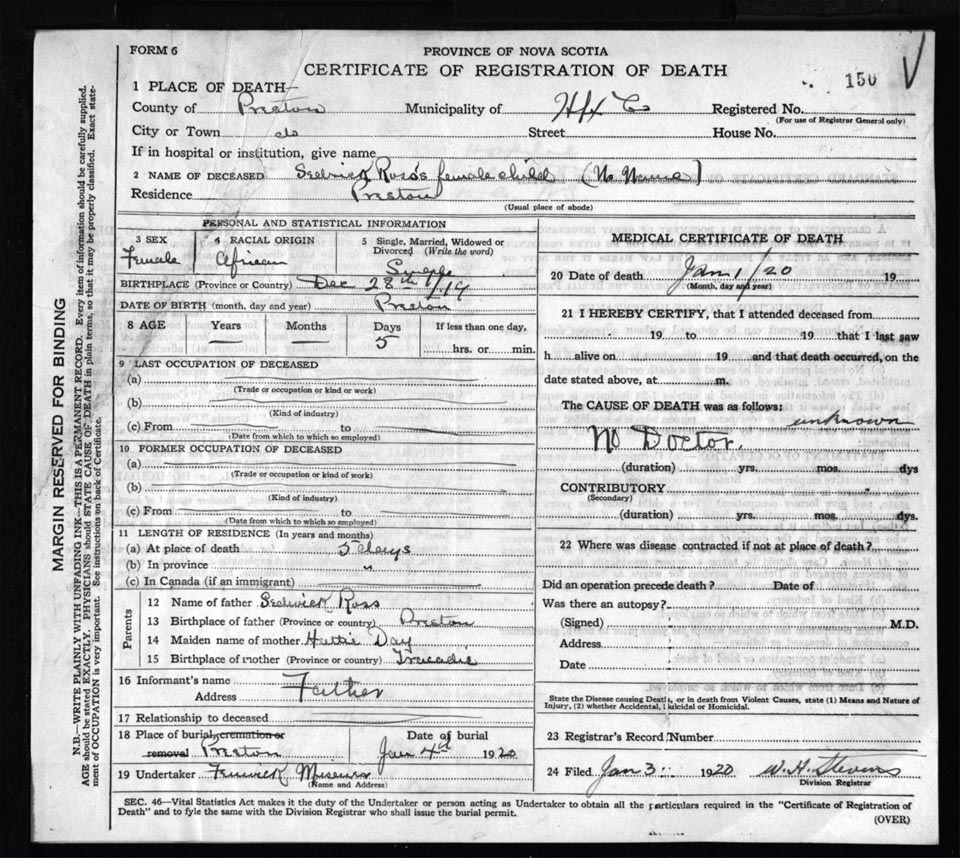 FORM 6
PROVINCE OF NOVA SCOTIA
CERTIFICATE OF REGISTRATION OF DEATH
150
1 PLACE OF DEATH—
County of Preston Municipality of Hfx Co Registered No.
(For use of Registrar General only)
City or Town do Street House No.
If in hospital or institution, give name
2 NAME OF DECEASED Sedwick Ross's female child (No Name)
Residence Preston
(Usual place of abode)
PERSONAL AND STATISTICAL INFORMATION
3 SEX 4 RACIAL ORIGIN 5 Single, Married, Widowed or Divorced (Write the word)
Female African Single
BIRTHPLACE (Province or Country) Dec 28th/19
DATE OF BIRTH (month, day and year) Preston
8 AGE Years Months Days If less than one day,
— — 5 hrs. or min.
9 LAST OCCUPATION OF DECEASED
(a)
(Trade or occupation or kind or work)
(b)
(Kind of industry)
(c) From to
(Date from which to which so employed)
10 FORMER OCCUPATION OF DECEASED
(a)
(Trade or occupation or kind of work)
(b)
(Kind of industry)
(c) From to
(Date from which to which so employed)
11 LENGTH OF RESIDENCE (In years and months)
(a) At place of death 5 days
(b) In province "
(c) In Canada (if an immigrant)
Parents
12 Name of father Sedwick Ross
13 Birthplace of father (Province or country) Preston
14 Maiden name of mother Hattie Day
15 Birthplace of mother (Province or country) Tracadie
16 Informant's name Father
Address
17 Relationship to deceased
18 Place of burial, cremation or removal Preston
Date of burial Jan 4th 1920
19 Undertaker Fenwick
(Name and Address)
MEDICAL CERTIFICATE OF DEATH
20 Date of death Jan 1/20 19
(Month, day and year)
21 I HEREBY CERTIFY, that I attended deceased from
19 to 19 that I last saw
h alive on 19 and that death occurred, on the
date stated above, at m.
The CAUSE OF DEATH was as follows:
unknown
No Doctor.
(duration) yrs. mos. dys
CONTRIBUTORY
(Secondary)
(duration) yrs. mos. dys.
22 Where was disease contracted if not at place of death?
Did an operation precede death? Date of
Was there an autopsy?
(Signed) M.D.
Address
Date
State the Disease causing Death, or in death from Violent Causes, state (1) Means and Nature of
Injury, (2) whether Accidental, Suicidal or Homicidal.
23 Registrar's Record Number
24 Filed Jan 3 1920 W. H. Stevens
Division Registrar
SEC. 46—Vital Statistics Act makes it the duty of the Undertaker or person acting as Undertaker to obtain all the particulars required in the "Certificate of Registration of
Death" and to fyle the same with the Division Registrar who shall issue the burial permit.
(OVER)
MARGIN RESERVED FOR BINDING
N.B.—WRITE PLAINLY WITH UNFADING INK—THIS IS A PERMANENT RECORD. Every item of information should be carefully supplied.
AGE should be stated EXACTLY. PHYSICIANS should STATE CAUSE OF DEATH in plain terms, so that it may be properly classified. Exact state-
ment of OCCUPATION is very important. See instructions on back of Certificate.